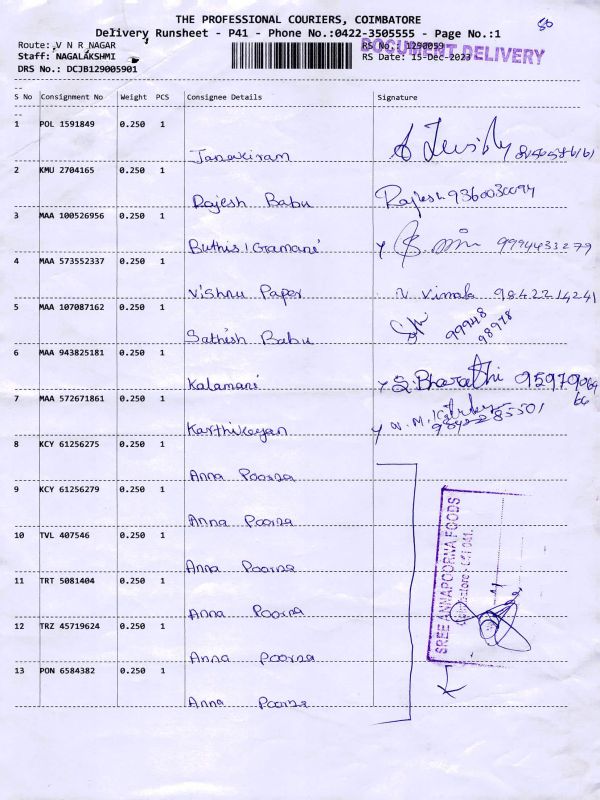 THE PROFESSIONAL COURIERS, COIMBATORE
50
Delivery Runsheet - P41 - Phone No.:0422-3505555 - Page No.:1
Route: V N R NAGAR
RS No.: 1250059
DOCUMENT DELIVERY
Staff: NAGALAKSHMI
RS Date: 15-Dec-2023
DRS No.: DCJB129005901
S No Consignment No Weight PCS Consignee Details Signature
1 POL 1591849 0.250 1
Janakiram
2 KMU 2704165 0.250 1
Rajesh Babu Rajesh 9360030094
3 MAA 100526956 0.250 1
Buthis Gramani 9994433279
4 MAA 573552337 0.250 1
Vishnu Paper V Vimala 9842214241
5 MAA 107087162 0.250 1
Sathish Babu 99948 98978
6 MAA 943825181 0.250 1
Kalamani S. Bharathi 9597906466
7 MAA 572671861 0.250 1
Karthikeyan 9842285501
8 KCY 61256275 0.250 1
Anna Poorna
9 KCY 61256279 0.250 1
Anna Poorna
10 TVL 407546 0.250 1
Anna Poorna
11 TRT 5081404 0.250 1
Anna Poorna
12 TRZ 45719624 0.250 1
Anna Poorna
13 PON 6584382 0.250 1
Anna Poorna
SREE ANNAPOORNA FOODS